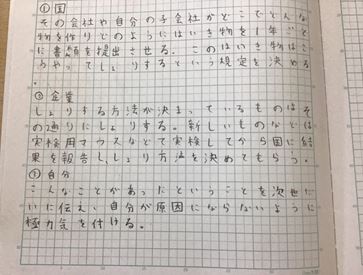 ①国
その会社や自分の子会社がどこでどんな
物を作りどのようにはいき物を1年ごと
に書類を提出させる。このはいき物はこ
うやってしょりするという規定を決める
。
②企業
しょりする方法が決まっているものはそ
の通りにしょりする。新しいものなどは
実検用マウスなどて実検してから国に結
果を報告ししょり方法を決めてもらう。
③自分
こんなことがあったということを次世た
いに伝え、自分が原因にならないように
極力気を付ける。